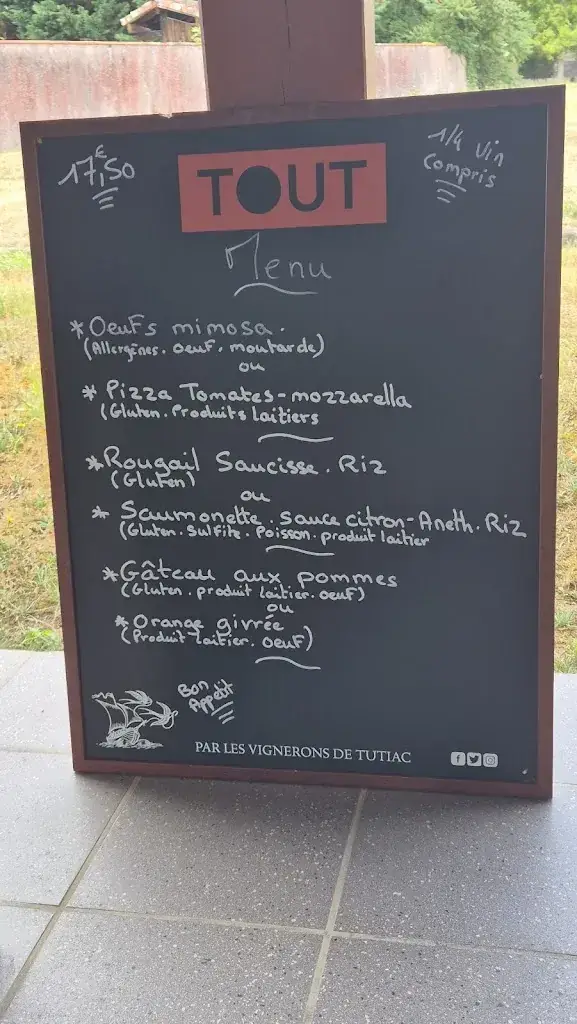 17,50€
1/4 Vin
Compris
TOUT
Menu
* Oeufs mimosa.
(Allergènes. oeuf. moutarde)
ou
* Pizza Tomates-mozzarella
(Gluten. Produits laitiers
* Rougail Saucisse. Riz
(Gluten)
ou
* Saumonette. sauce citron-Aneth. Riz
(Gluten. Sulfite. Poisson. produit laitier
* Gâteau aux pommes
(Gluten. produit laitier. oeuf)
ou
* Orange givrée
(Produit laitier. oeuf)
Bon
Appetit
PAR LES VIGNERONS DE TUTIAC